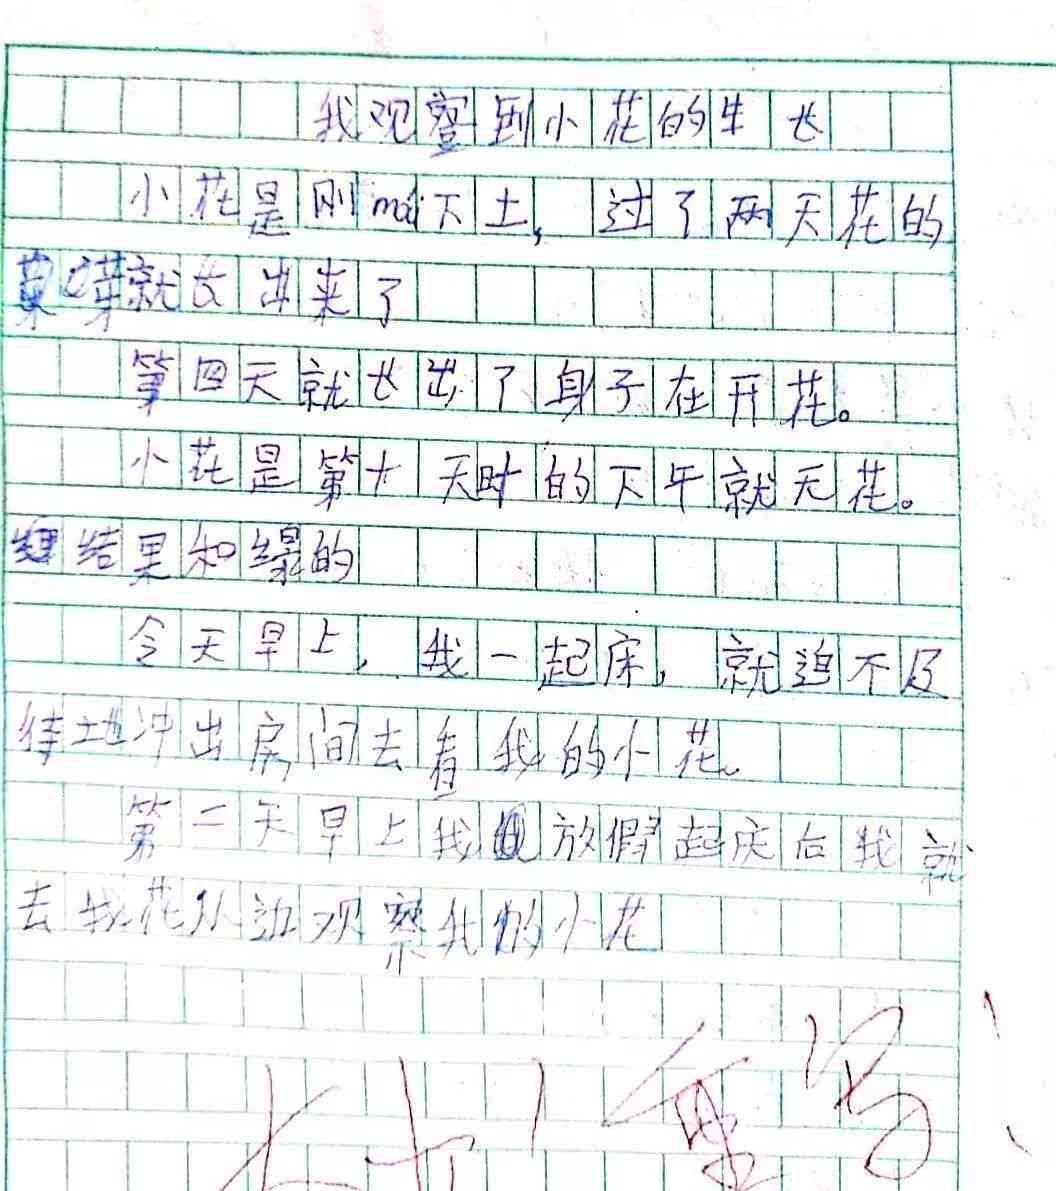 我观察到小花的生长
小花是刚mái下土，过了两天花的
芽就长出来了
第四天就长出了身子在开花。
小花是第十天时的下午就无花。
结果和绿的
今天早上，我一起床，就迫不及
待地冲出房间去看我的小花。
第二天早上我放假起床后我就
去我花从边观察我的小花
重写！